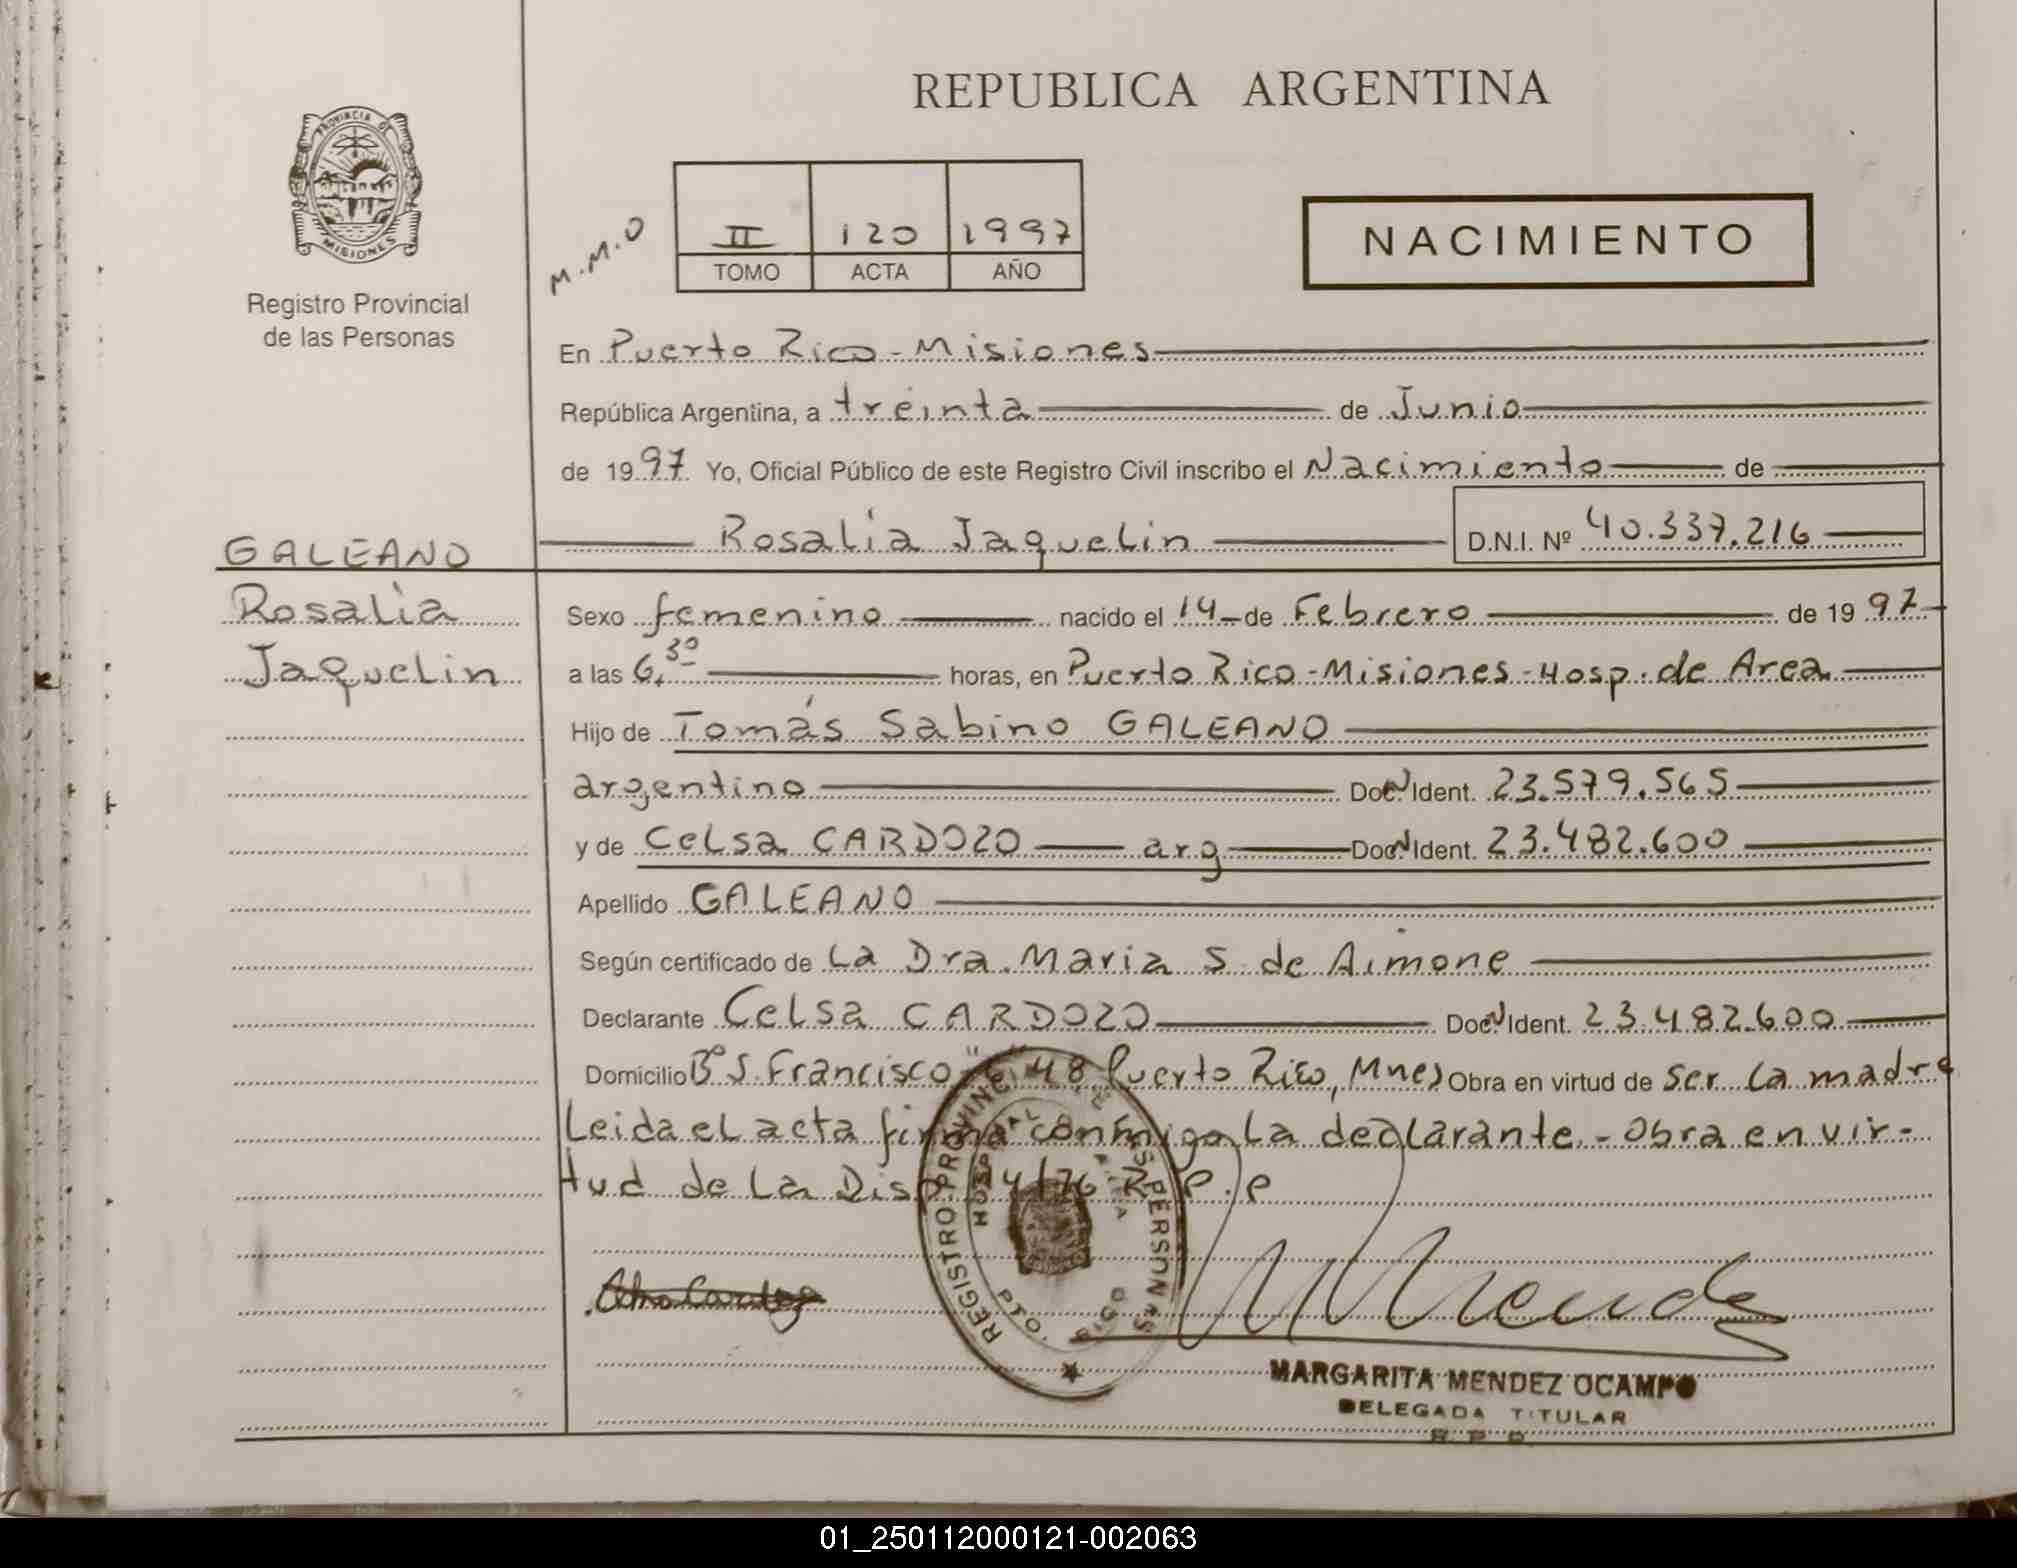 REPUBLICA ARGENTINA
PROVINCIA DE
MISIONES
Registro Provincial
de las Personas
M.M.O
II 120 1997
TOMO ACTA AÑO
NACIMIENTO
En Puerto Rico - Misiones
República Argentina, a treinta de Junio
de 1997 Yo, Oficial Público de este Registro Civil inscribo el Nacimiento de
Rosalía Jaquelin D.N.I. Nº 40.337.216
GALEANO
Rosalía
Jaquelin
Sexo femenino nacido el 14 de Febrero de 1997
a las 6,30 horas, en Puerto Rico - Misiones - Hosp. de Area
Hijo de Tomás Sabino GALEANO
argentino Doc N Ident. 23.579.565
y de Celsa CARDOZO arg Doc N Ident. 23.482.600
Apellido GALEANO
Según certificado de La Dra. Maria S. de Aimone
Declarante Celsa CARDOZO Doc N Ident. 23.482.600
Domicilio Bº S. Francisco 48 Puerto Rico, Mnes Obra en virtud de ser la madre
Leida el acta firma conmigo la declarante - Obra en vir-
tud de la Disp. 14/76 R.P.P
REGISTRO PROVINCIAL DE LAS PERSONAS
HOSPITAL AREA
PTO. RICO
MARGARITA MENDEZ OCAMPO
DELEGADA TITULAR
R.P.P
01_250112000121-002063